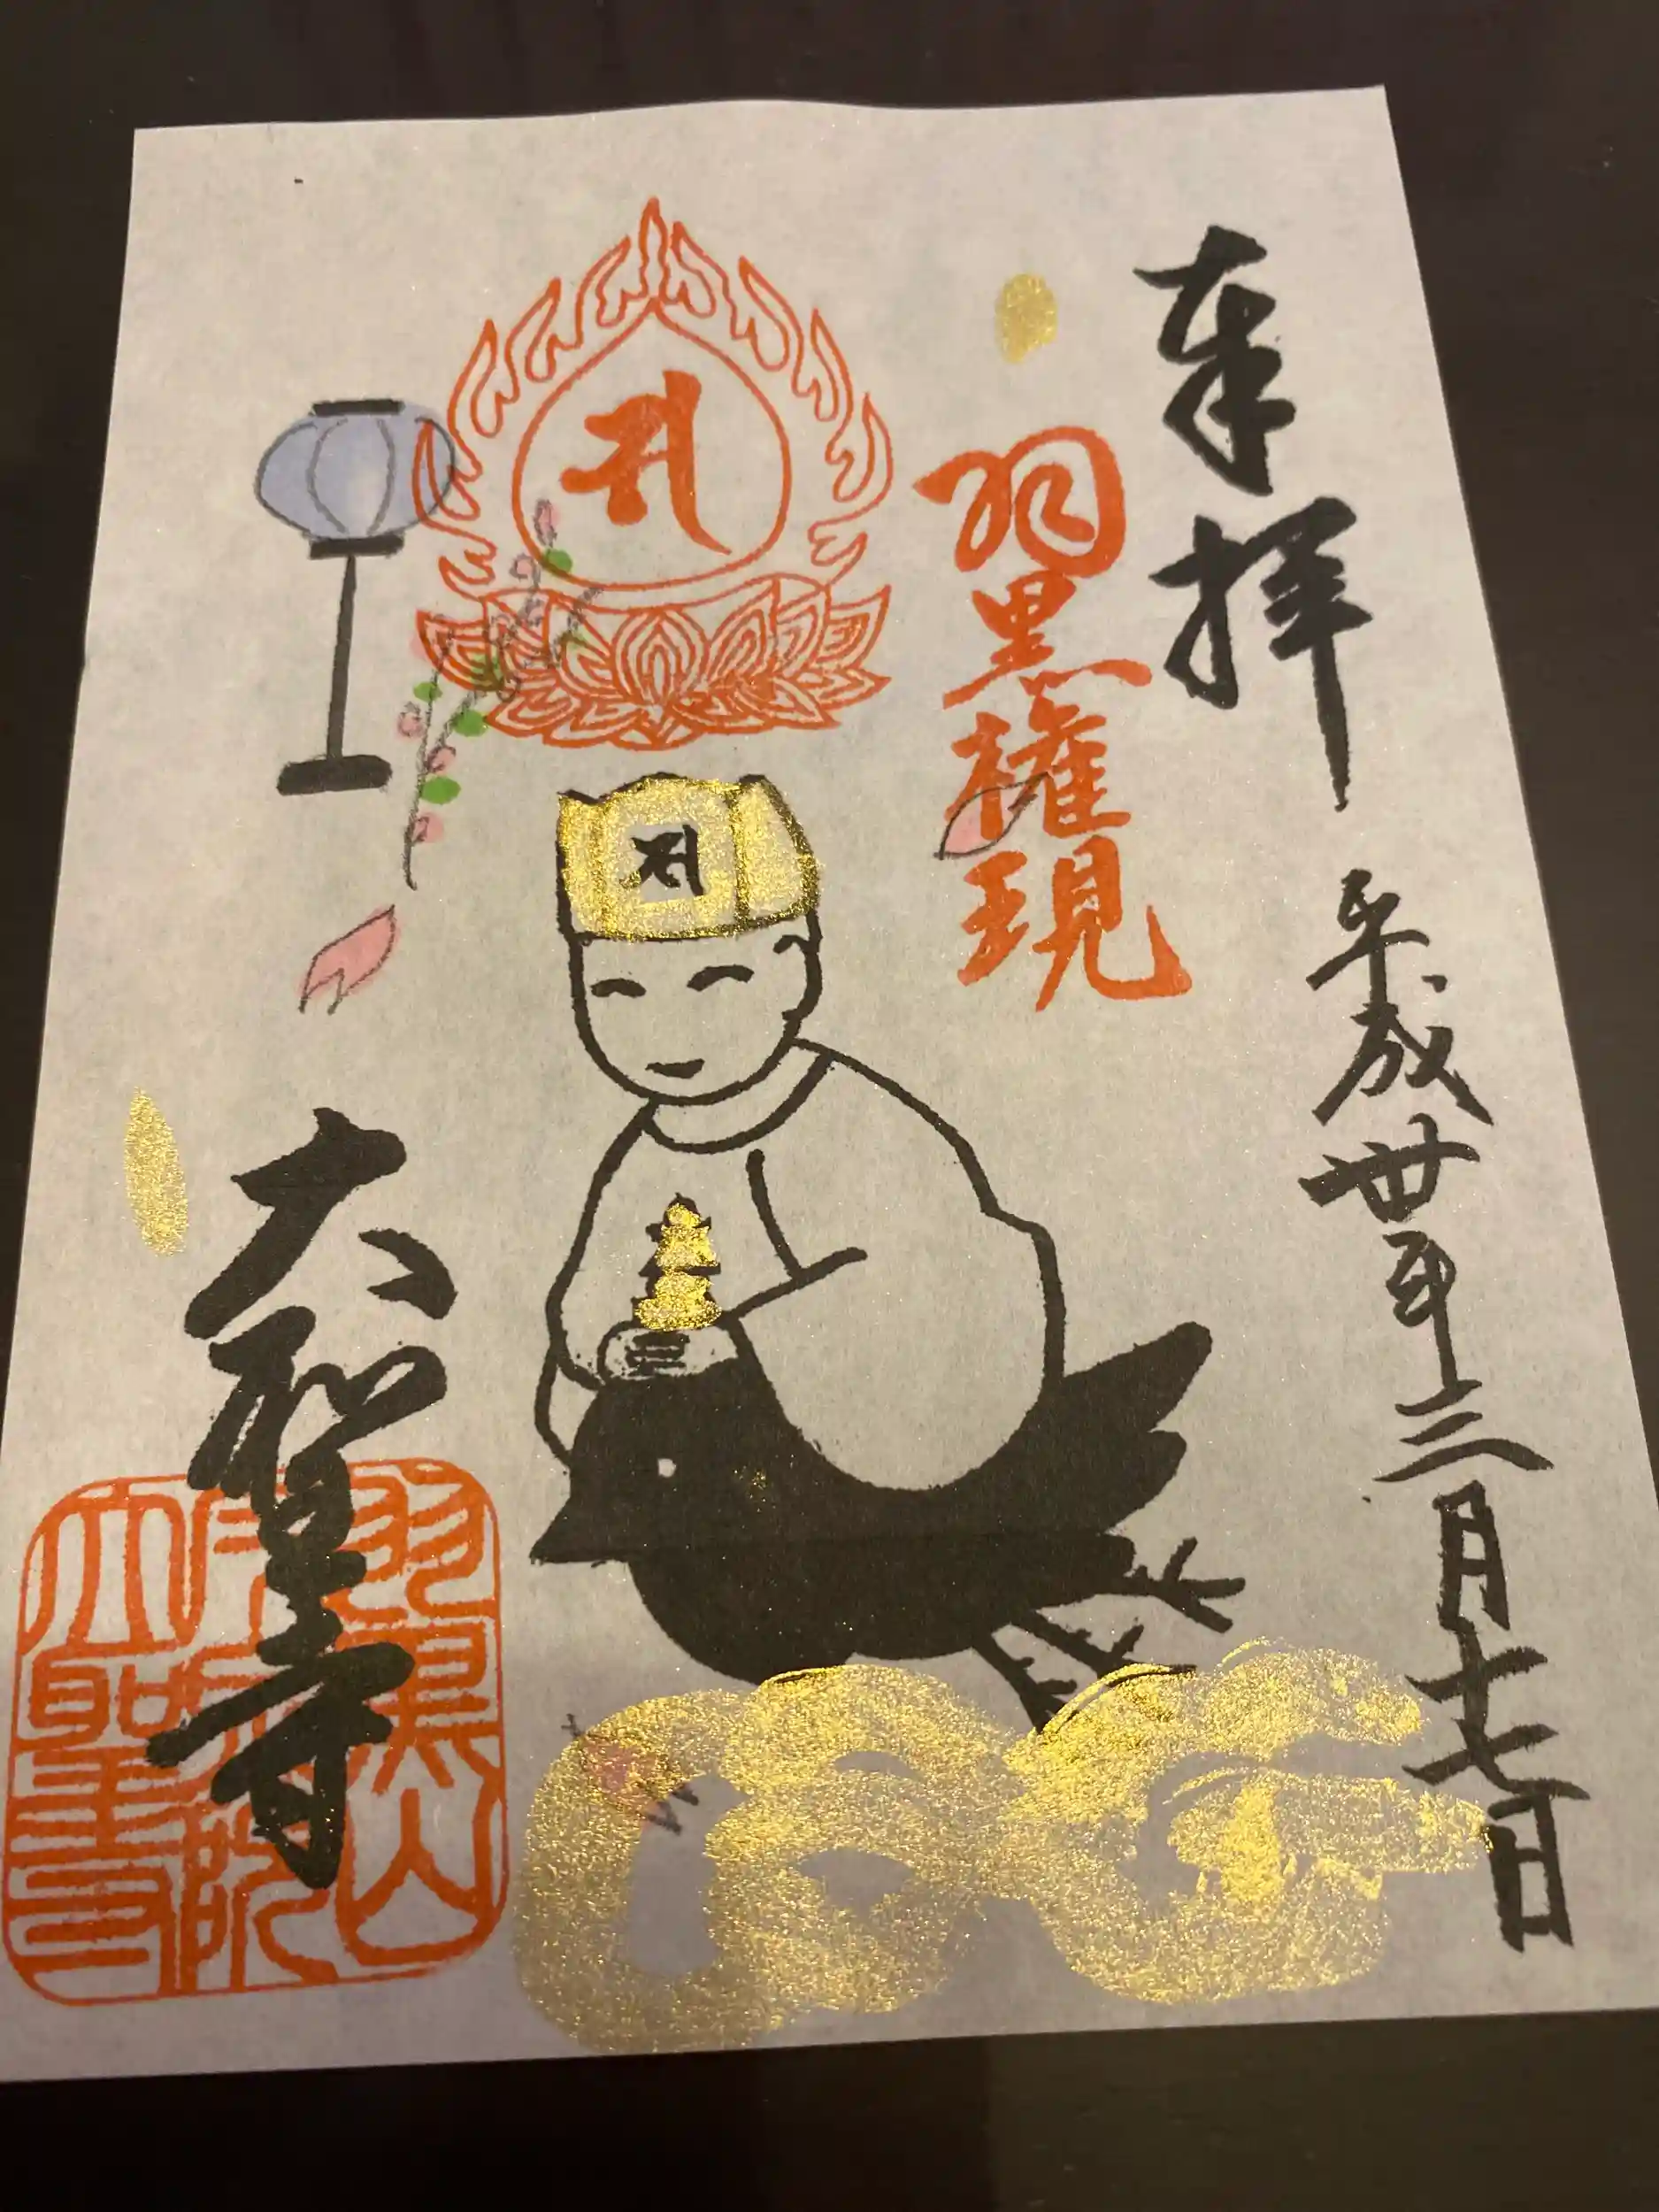 奉拝
平成卅年三月十七日
羽黒権現
大聖寺
羽黒山
大聖寺